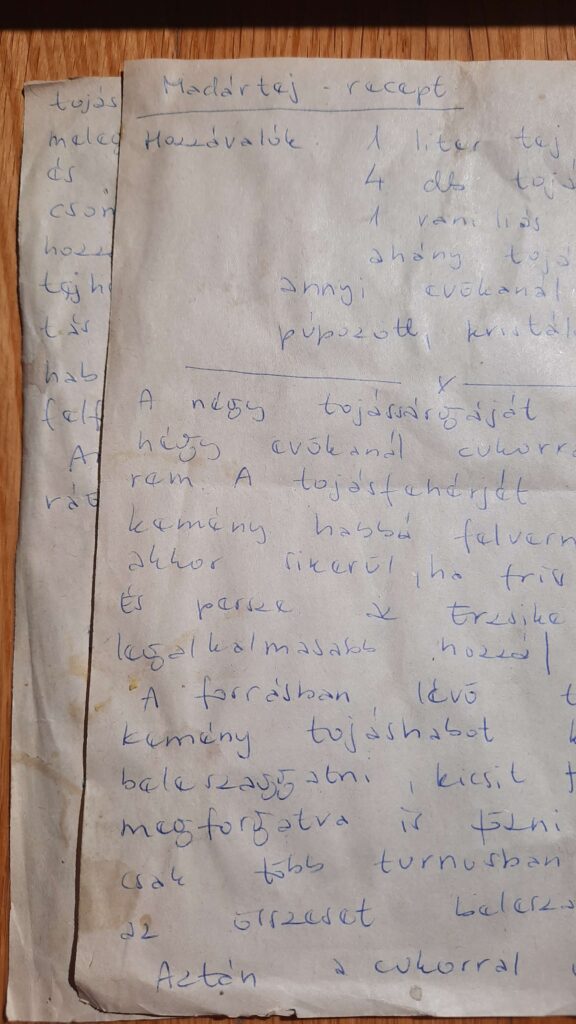 Madártej - recept
Hozzávalók. 1 liter tej
4 db tojá
1 vaniliás
ahány tojá
annyi evőkanál
púpozott, kristál
A négy tojássárgáját
négy evőkanál cukorra
rem. A tojásfehérját
kemény habbá felvern
akkor sikerül, ha fris
És persze az Erzsike
legalkalmasabb hozzá
A forrásban lévő t
kemény tojáshabot k
beleszaggatni, kicsit
megforgatva is főzni
csak több turnusban
az összeset belesza
Aztán a cukorral
tojás
meleg
és
csom
hozz
tejh
tás
hab
felf
A
rát